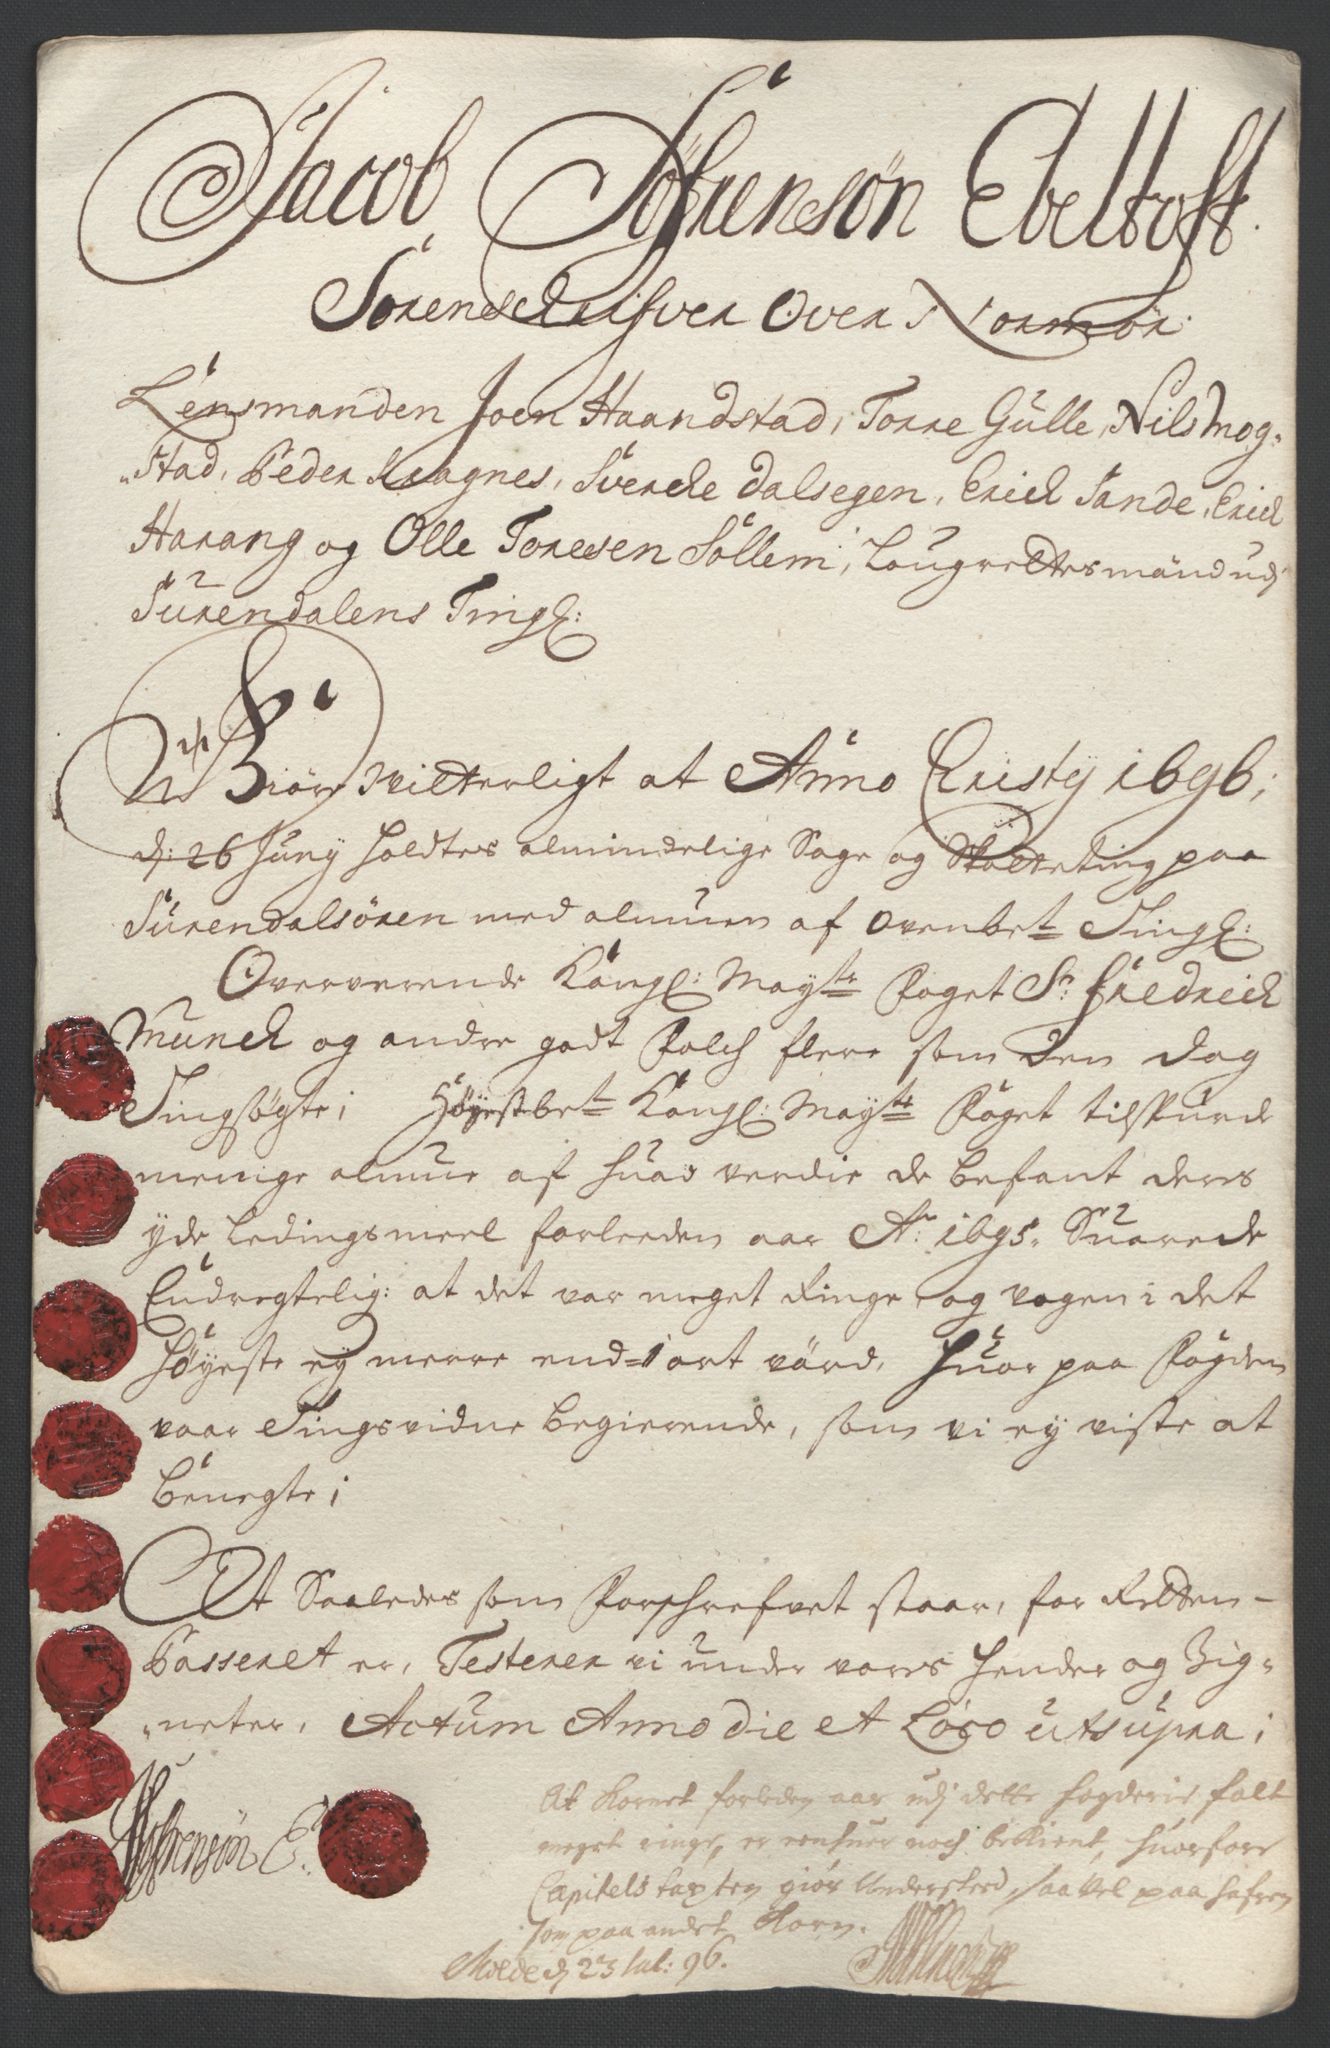 Jacob Søfrensøn Ebeltoft
Sorenschrifver Over Normør:
Lensmanden Joen Haandstad, Torre Gulle, Nils Mog-
stad, Peder Kragnes, Sverche Dalsegen, Erich Sande, Erich
Harang og Olle Toresen Sollem, Laugrettesmænd udj
Surendalens Tingl:
Giør Witterligt at Anno Cristy 1696,
d: 26 Juny holdtes almindelige Sage og Skatteting paa
Surendalsøren med almuen af ovenbete Tingl:
Oververende Kongl: Maytz Foget Sr. Fredrich
Munch og andre godt Folch flere som den dag
Tingsøgte; Høyestbete Kongl: Maytz Foget tilspurde
menige almue af huad verdie de befant deris
yde Ledingsmeel forleeden aar Ao: 1695. Suarede
Endregtelig: at det var meget Ringe og vogen i det
høyeste ey merre end 1 ort værd, huor paa Fogden
vaar Tingsvidne begierende, som vi ey viste at
benegte;
At Saaledes som Forschrefvet staar, for Retten
Passeret er, Testerer vi under vores hender og Zig-
neter, Actum Anno die et Loco utsupra;
JSøfrensøn E:
At Kornet forleden aar udj dette fogderie falt
meget ringe, er enhuer noch bekient, huorfore
Capitels taxten giør Underskeed, saa vel paa hafren
som paa andet Korn.
Molde d 23 Jul: 96.